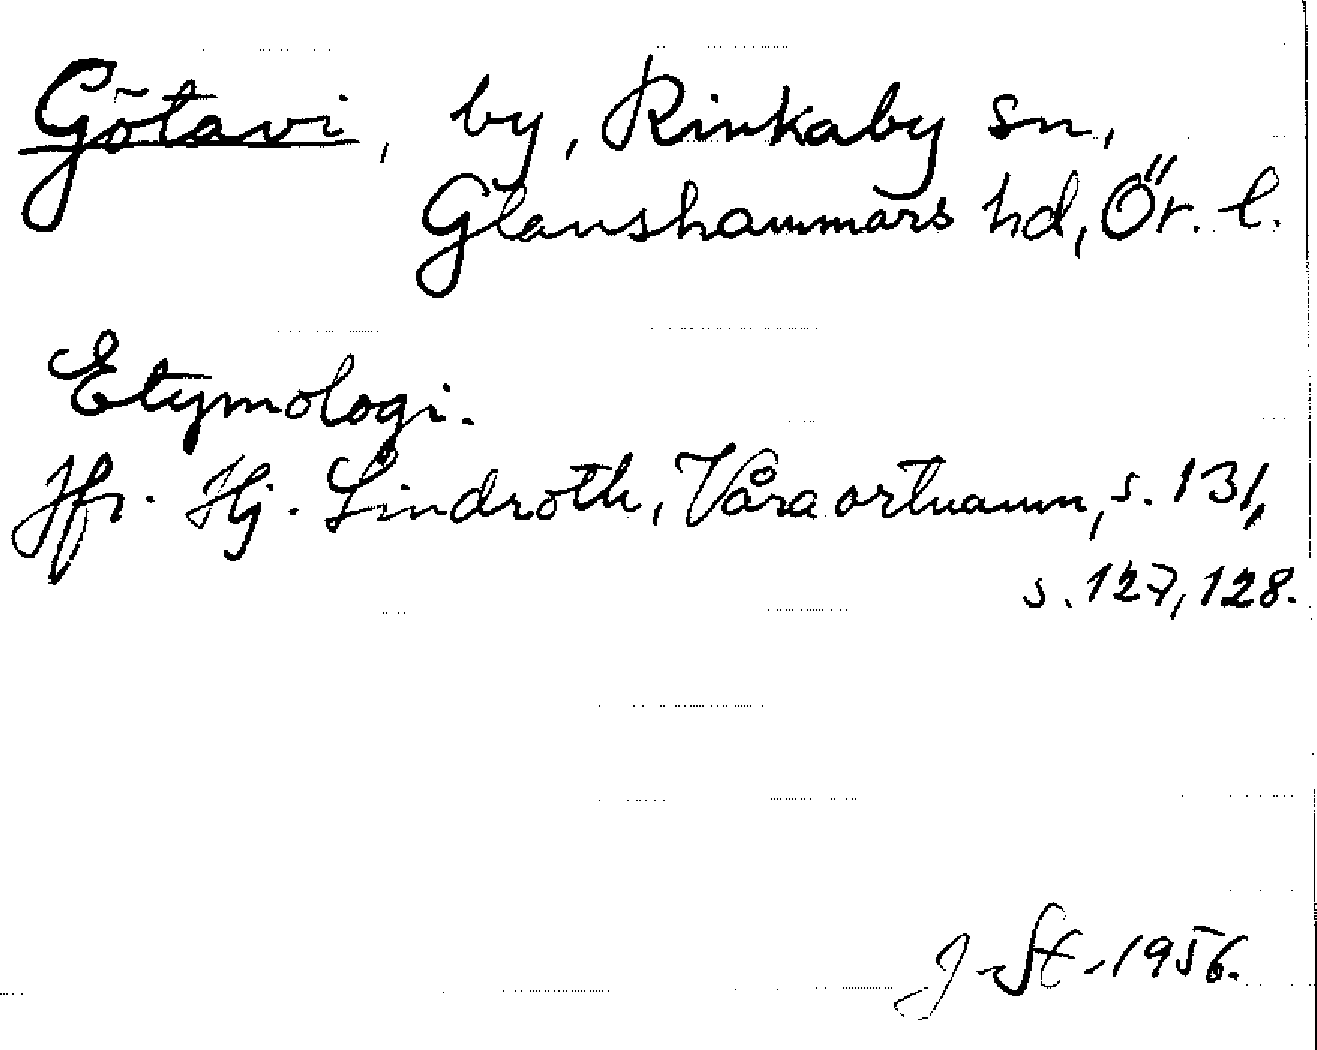 Götavi, by, Rinkaby sn,
Glanshammars hd, Ör. l.
Etymologi.
Jfr. Hj. Lindroth, Våra ortnamn, s. 131,
s. 127, 128.
J. St. 1956.